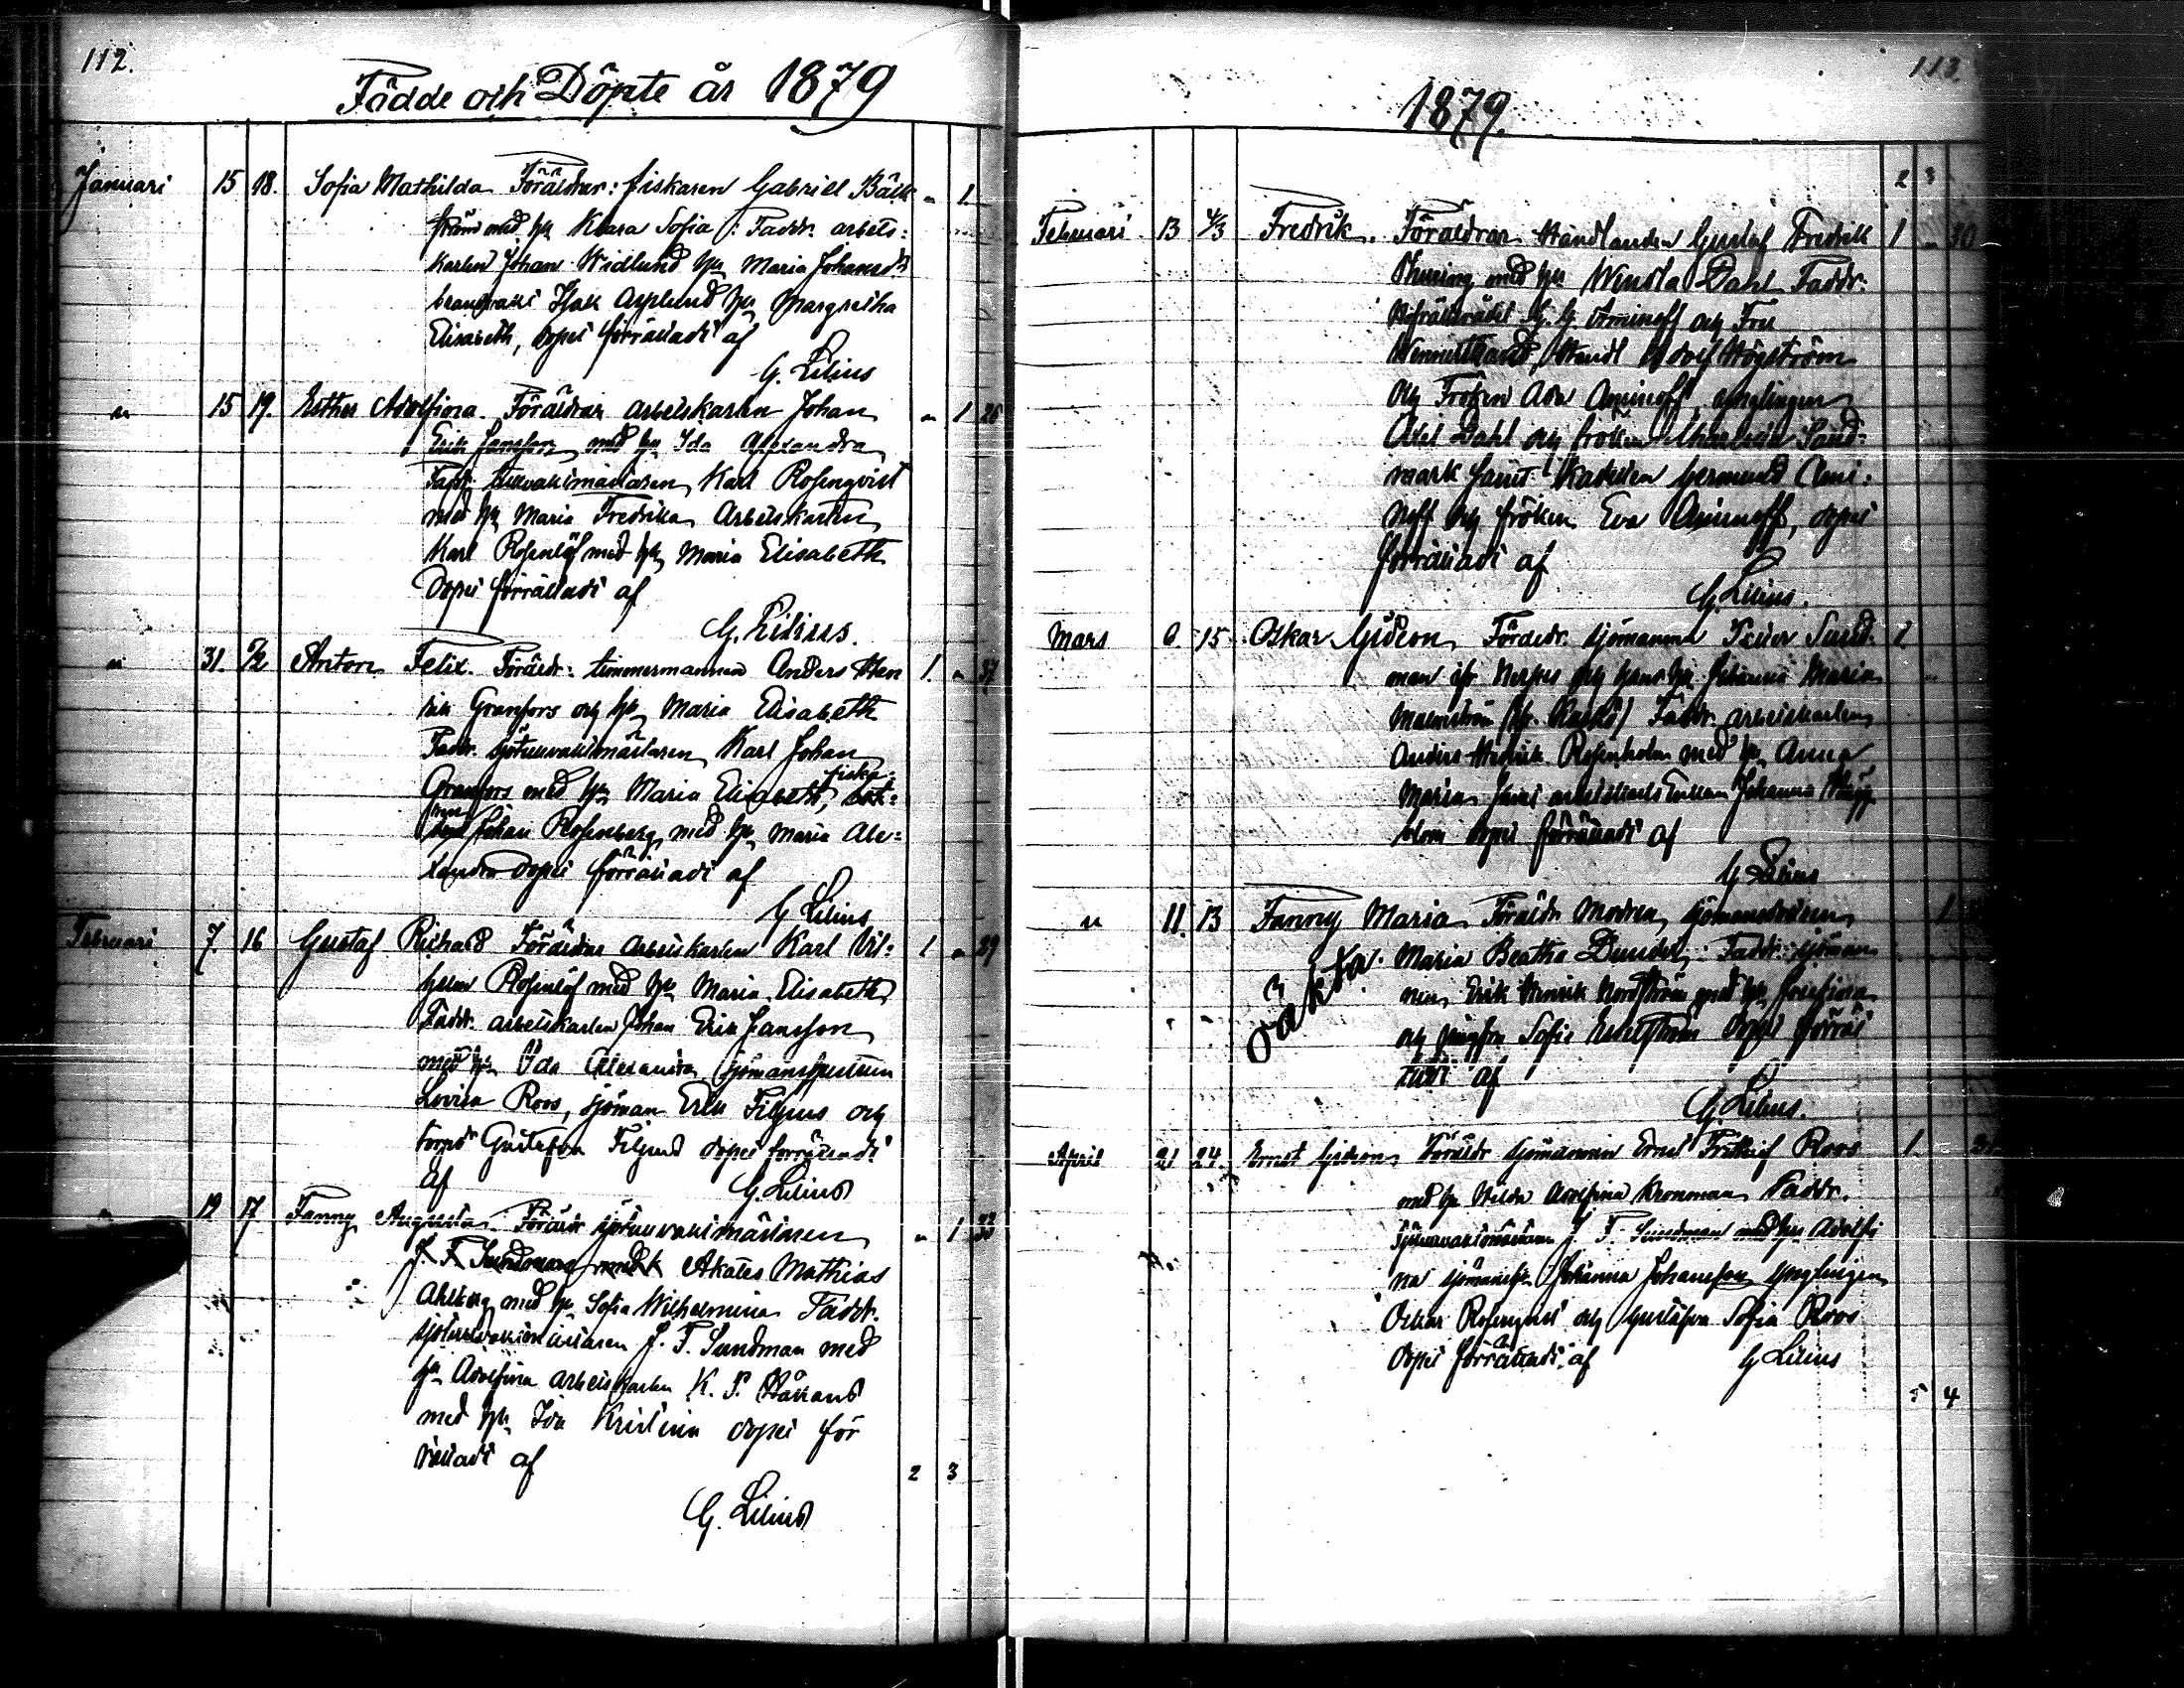 112.
Födde och Döpte år 1879
Januari 15 18. Sofia Mathilda Föräldrar: fiskaren Gabriel Bäck- " 1
ström med hu Klara Sofia : Faddr. arbets-
karlen Johan Widlund hu Maria Johansdr
Isak Asplund hu Margretha
Elisabeth, dopet förrättadt af
G. Lilius
" 15 19. Esther Adolfina. Föräldrar arbetskarlen Johan " 1 26
Erik Jansson med hu Ida Alexandra
Faddr. tullvaktmästaren Karl Rosenqvist
med hu Maria Fredrika Arbetskarlen
Karl Rosenlöf med hu Maria Elisabeth
Dopet förrättadt af
G. Lilius.
" 31. 2/2 Anton Felix. Föräldr: timmermannen Anders Hen 1 " 37
rik Granfors och hu Maria Elisabeth
Faddr. sjötullvaktmästaren Karl Johan
Granfors med hu Maria Elisabeth, fiska-
ren Johan Rosenberg med hu Maria Ale-
xandra dopet förrättadt af
G Lilius
Februari 7. 16 Gustaf Richard Föräldrar arbetskarlen Karl Vil- 1 " 29
helm Rosenlöf med hu Maria Elisabeth
Faddr. arbetskarlen Johan Erik Jansson
med hu Ida Alexandra, sjömanshustrun
Lovisa Roos, sjöman Erik Filpus och
Gustafva Filpus dopet förrättadt
af G. Lilius
12 17 Fanny Augusta. Föräldr sjötullvaktmästaren " 1 33
J. F. Sundman med Akates Mathias
Ahlberg med hu Sofia Wilhelmina Faddr.
sjötullvaktmästaren J. F. Sundman med
hu Adolfina arbetskarlen K. F.
med hu Ida Kristina dopet för
rättadt af
2 3
G. Lilius
113.
1879.
2 3
Februari 13 4/3 Fredrik. Föräldrar Handlanden Gustaf Fredrik 1 " 30
Thuring med hu Wendla Dahl Faddr:
Hofrättsrådet G. G. Aminoff och Fru
Handl Adolf Högström
och Fröken Ada Aminoff, ynglingen
Axel Dahl och fröken Sand-
mark samt Kadetten Germund Ami-
noff och fröken Eva Aminoff, dopet
förrättadt af
G. Lilius.
Mars 15 Oskar Gideon Föräldr. sjömannen Sund- 1
man ifr Nerpes och hans hu Johanna Maria "
Malmström (fr. Kaskö) Faddr. arbetskarlen
Anders Hedrik Rosenholm med hu Anna
Maria samt Enkan Johanna Hägg
blom dopet förrättadt af
G Lilius
" 11. 13 Fanny Maria Föräldr Modren, 1
Oäkta. Maria Beatha Faddr: sjöman
nen Erik Henrik Nordström med hu Josefina
och jungfru Sofia dopet förrät
tadt af
G. Lilius.
April 21 24. Ernst Gideon Föräldr sjömannen Ernst Frithiof Roos 1.
med hu Hilda Adolfina Kronman Faddr.
Tullvaktmästaren J. F. Sundman med hu Adolfi
na sjömansh. Johanna Johansson ynglingen
Oskar Rosenqvist och Gustafva Sofia Roos
dopet förrättadt af G Lilius
5 4